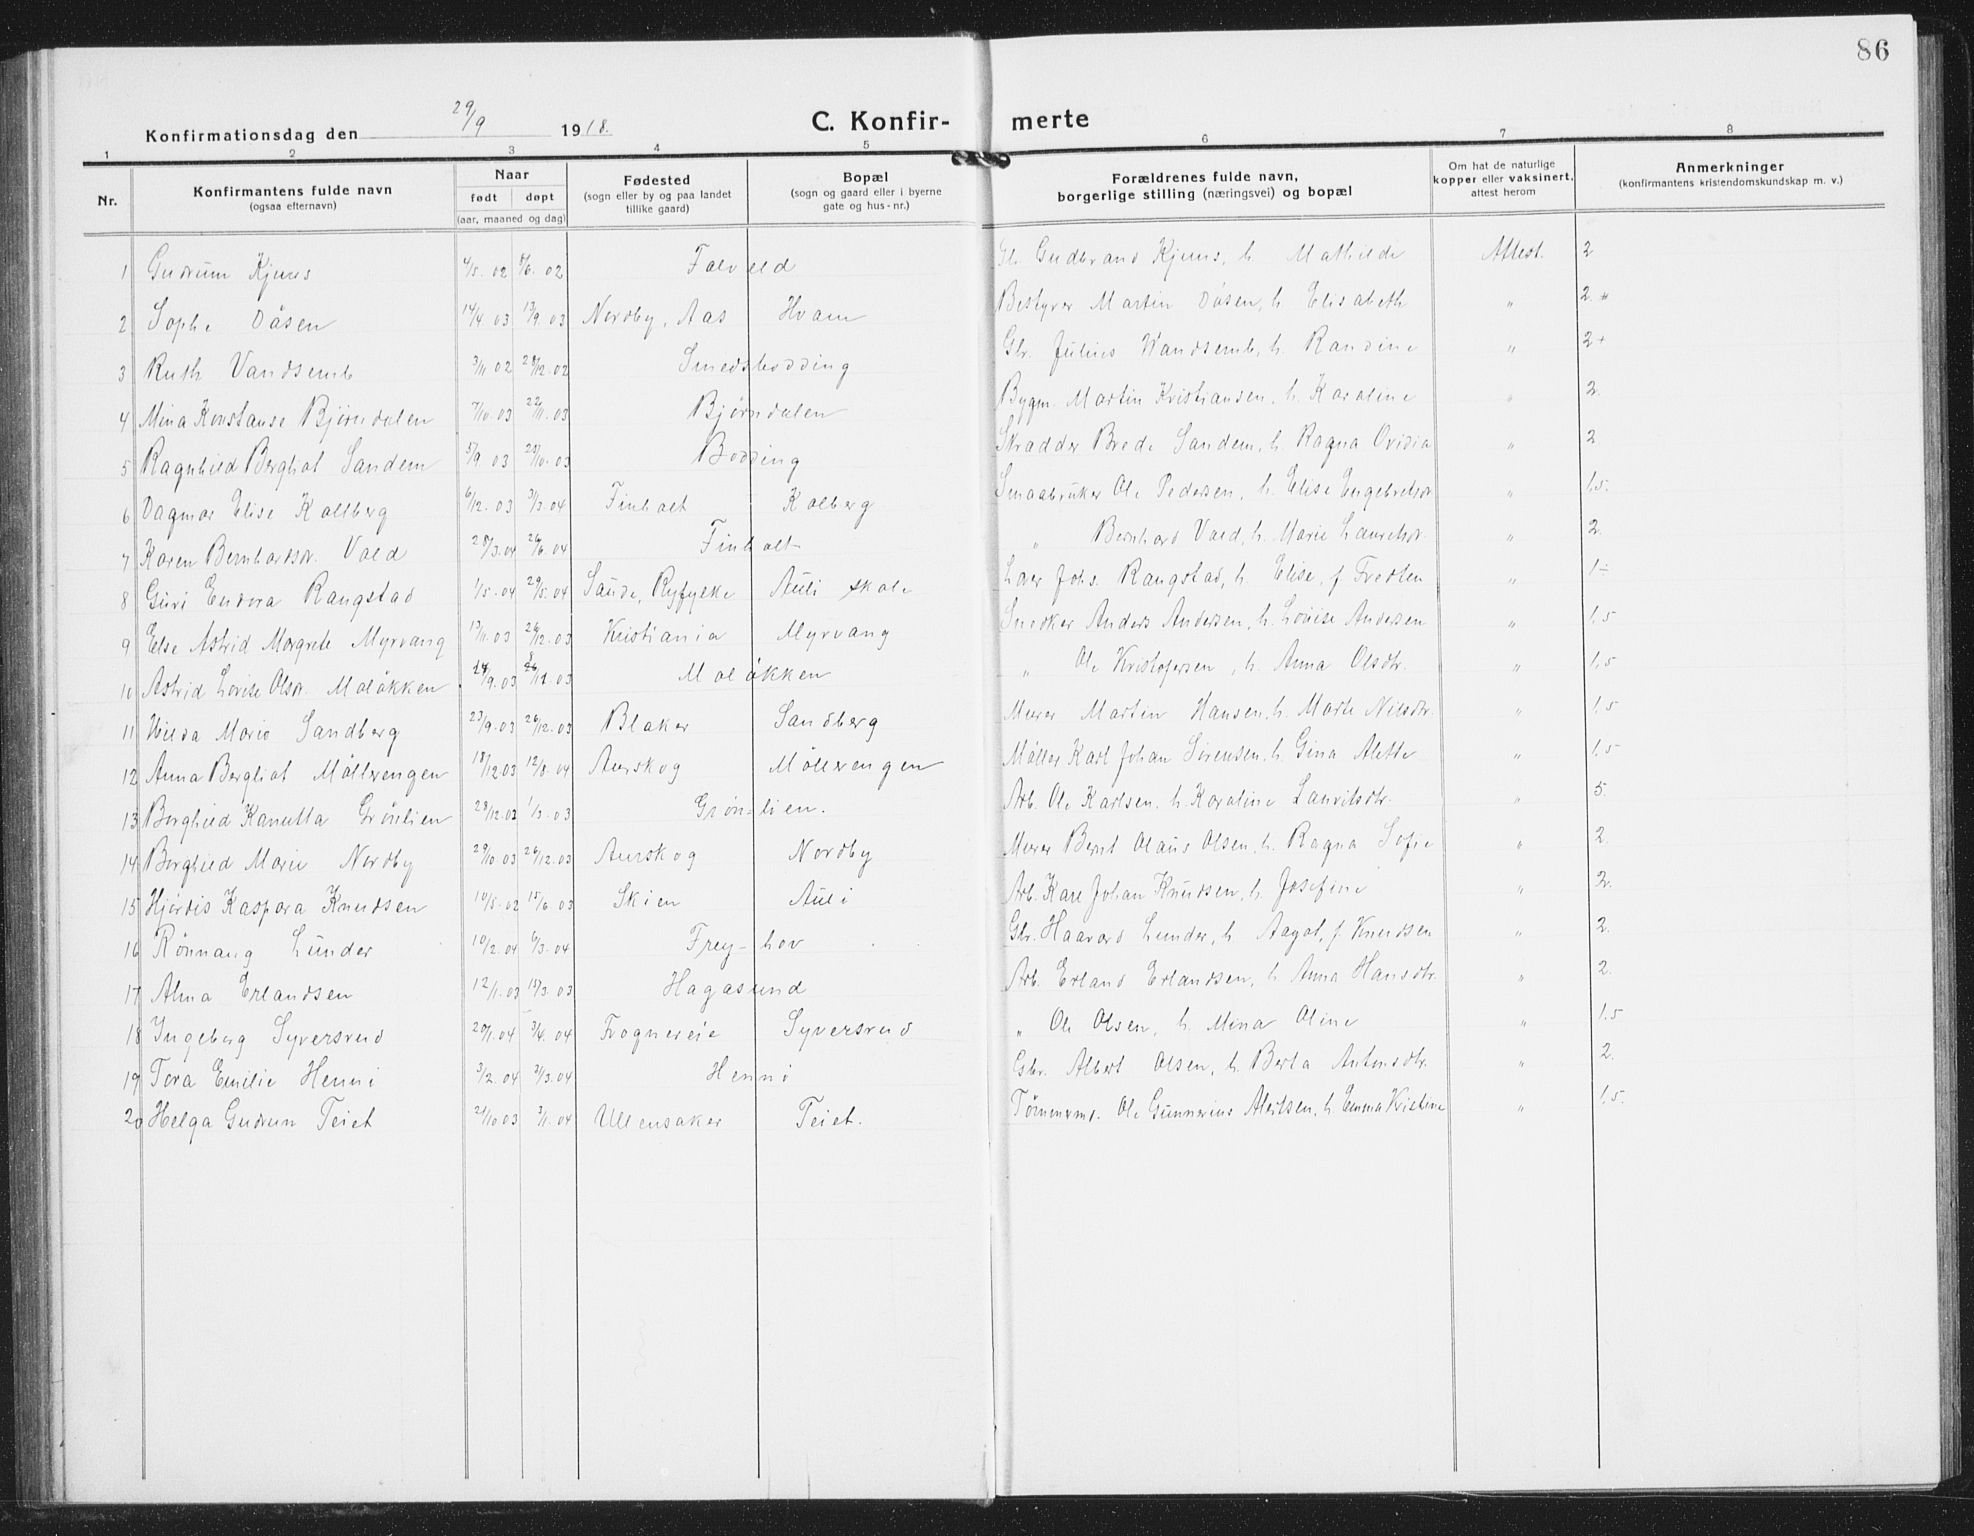 86
Konfirmationsdag den 29/9 1918.
C. Konfirmerte
1 2 3 4 5 6 7 8
Nr. | Konfirmantens fulde navn (ogsaa efternavn) | Naar født døpt (aar, maaned og dag) | Fødested (sogn eller by og paa landet tillike gaard) | Bopæl (sogn og gaard eller i byerne gate og hus-nr.) | Forældrenes fulde navn, borgerlige stilling (næringsvei) og bopæl | Om hat de naturlige kopper eller vaksinert, attest herom | Anmerkninger (konfirmantens kristendomskundskap m. v.)
1 Gudrun Kjuus 4/5 02 8/6 02 Falveld Gbr. Gudbrand Kjuus, h. Mathilde Attest. 2
2 Sophe Dåsen 14/4 03 13/9 03 Nordby, Aas Hvam Bestyrer Martin Dåsen, h. Elisabeth " 2+
3 Ruth Vandsemb 3/11 02 28/12 02 Smedsbodding Gbr. Julius Wandsemb, h. Randine " 2+
4 Mina Konstanse Bjørndalen 7/10 03 22/11 03 Bjørndalen Bygm. Martin Kristiansen, h. Karoline " 2.
5 Ragnhild Bergliot Sandem 5/9 03 25/10 03 Bodding Skradder Brede Sandem, h. Ragna Ovidia " 2
6 Dagmar Elise Kallberg 6/12 03 3/3 04 Finholt Kalberg Smaabruker Ole Pedersen, h. Elise Engebretsdr. " 1,5.
7 Karen Bernhardsdr. Vald 28/3 04 26/6 04 Finholt " Bernhard Vald, h. Marie Lauretsdr. " 2.
8 Guri Endora Rangstad 1/5 04 29/5 04 Saude, Ryfylke Auli skole Lærer Johs. Rangstad, h. Elise, f. Tredten " 1÷
9 Else Astrid Margrete Myrvang 13/11 03 26/12 03 Kristiania Myrvang Snedker Anders Andersen, h. Lovise Andersen " 1,5
10 Astrid Lovise Olsdr. Maløkken 14/9 03 03 Maløkken " Ole Kristofersen, h. Anna Olsdtr. " 1,5
11 Hilda Marie Sandberg 23/9 03 26/12 03 Blaker Sandberg Murer Martin Hansen, h. Marte Nilsdtr. " 1,5
12 Anna Bergliot Møllerengen 18/12 03 12/8 04 Aurskog Møllerengen Møller Karl Johan Sørensen, h. Gina Alette " 1,5
13 Borghild Kanutta Grönlien 28/12 02 1/3 03 Grønlien. Arb. Ole Karlsen, h. Karoline Lauritsdtr. " 5.
14 Borghild Marie Nordby 29/10 03 26/12 03 Aurskog Nordby Murer Bernt Olaus Olsen, h. Ragna Sofie " 2
15 Hjørdis Kaspara Knudsen 10/5 02 15/6 03 Skien Auli Arb. Karl Johan Knudsen, h. Josefine " 2.
16 Rønnaug Lunder 10/2 04 6/3 04 Frey-hov Gbr. Haavard Lunder, h. Aagot, f. Knudsen " 2.
17 Alma Erlandsen 12/1 03 15/3 03 Hagasund Arb. Erland Erlandsen, h. Anna Hansdtr. " 2.
18 Ingeborg Syversrud 20/1 04 3/4 04 Frognereie Syversrud " Ole Olsen, h. Mina Oline " 1,5
19 Tora Emilie Henni 3/2 04 21/3 04 Henni Gbr. Albert Olsen, h. Berta Antonsdtr. " 2.
20 Helga Gudrun Teiet 21/10 03 3/1 04 Ullensaker Teiet. Tømmermd. Ole Gunnerius Alertsen, h. Emma Kristine " 1,5.